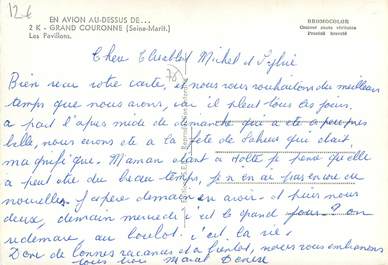 12€
EN AVION AU-DESSUS DE...
2 K - GRAND COURONNE (Seine-Marit.)
Les Pavillons.
BROMOCOLOR
Couleur photo véritable
Procédé breveté
Chers Elisabeth Michel et Sylvie
78
Bien reçu votre carte, et nous vous souhaitons des meilleurs
temps que nous avons, car il pleut tous les jours.
a part l'après midi de dimanche qui a été a peu près
belle, nous avons été a la fête de Sahurs qui était
magnifique. Maman étant à Jolte je pense qu'elle
a peut etre du beau temps, je n'en ai pas encore eu
nouvelles. J'espère demain en avoir et puis nous
deux, demain mercredi c'est le grand jour? on
redemare au boulot. c'est la vie.
Donc de bonnes vacances et a bientot, nous vous embrassons
tous trois Marcel Denise